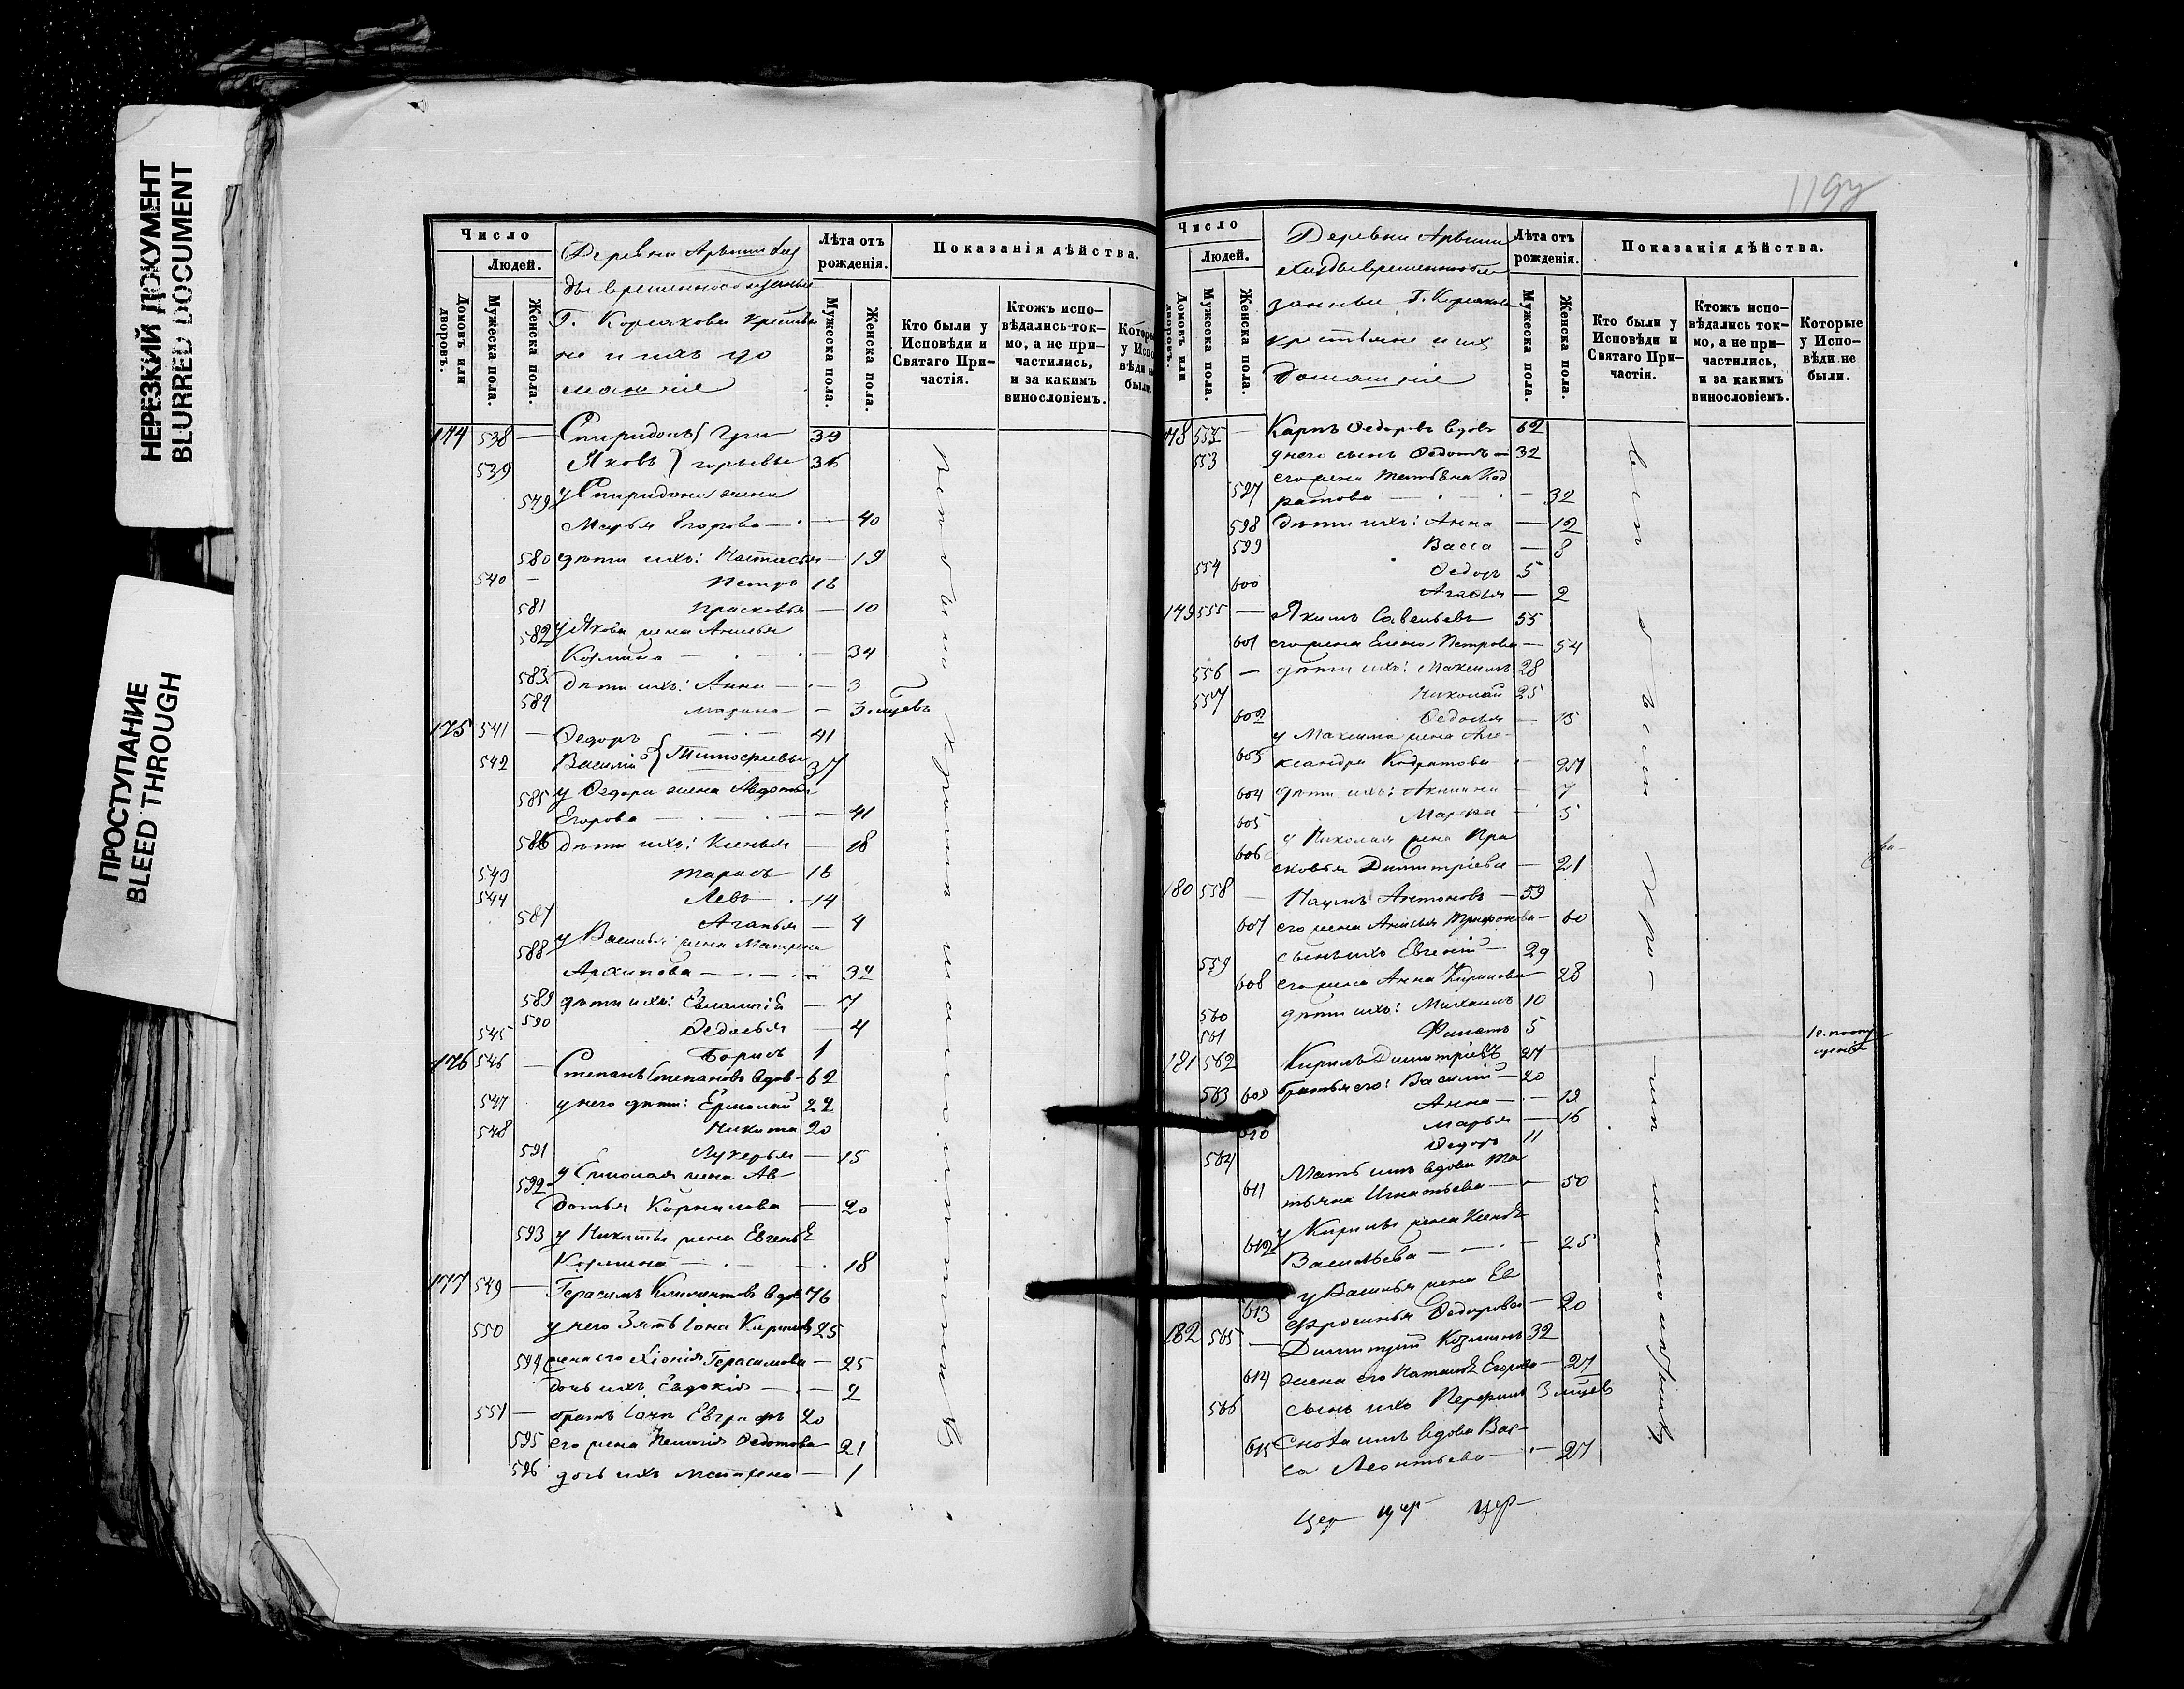 НЕРЕЗКИЙ ДОКУМЕНТ
BLURRED DOCUMENT
ПРОСТУПАНИЕ
BLEED THROUGH
Число
Людей.
Домовъ или дворовъ.
Мужеска пола.
Женска пола.
Деревни
временнообязанные
Г. Корсакова
не и ихъ до
машніе
Лѣта отъ рожденія.
Мужеска пола.
Женска пола.
Показанія дѣйства.
Кто были у Исповѣди и Святаго При-частія.
Ктожъ испо-вѣдались ток-мо, а не при-частились, и за какимъ винословіемъ.
174 538 — Спиридонъ { Гри 39
539 Яковъ } горьевы 36
579 у Спиридона жена
Марья Егорова — 40
580 дѣти ихъ: Настасья — 19
540 — Петръ 16
581 Прасковья — 10
582 у Якова жена Анисья
Козмина — 34
583 дѣти ихъ: Анна — 3
584 Марина — 3 мцевъ
175 541 — Федоръ 41
542 Василій } Тимофеевы 37
585 у Федора жена Авдотья
Егорова — 41
586 Дѣти ихъ: Ксенья — 18
543 Тарасъ 16
544 Левъ — 14
587 Агапья — 4
588 у Василья жена Матрена
Архипова — 32
589 дѣти ихъ: — 7
590 Федосья — 4
545 Борисъ 1
176 546 — Степанъ Степановъ вдов — 62
547 у него дѣти: Ермолай 22
548 Никита 20
591 Лукерья — 15
592 у Ермолая жена Ав
дотья Корнилова — 20
593 у Никиты жена
Козмина — 18
177 549 — Герасимъ Климентовъ вдов 76
550 у него Зять Іона Кирилов 25
594 жена его Хіонія Герасимова — 25
дочь ихъ Евдокія — 2
551 — братъ Іоны Евграфъ 20
595 его жена Пелагія Федотова — 21
596 дочь ихъ Матрена — 1
Число
Людей.
Домовъ или дворовъ.
Мужеска пола.
Женска пола.
Деревни
временнообя
занные Г. Корсакова
крестьяне и ихъ
Домашніе
Лѣта отъ рожденія.
Мужеска пола.
Женска пола.
Показанія дѣйства.
Кто были у Исповѣди и Святаго При-частія.
Ктожъ испо-вѣдались ток-мо, а не при-частились, и за какимъ винословіемъ.
Которые у Испо-вѣди не были.
178 552 — Карпъ Федоровъ вдовъ 62
553 у него сынъ Федотъ — 32
597 его жена Татьяна Код
ратова — 32
598 дѣти ихъ: Анна — 12
599 Васса — 8
554 Федоръ 5
600 Агафья — 2
179 555 — Якимъ Савельевъ 55
601 его жена Елена Петрова — 54
556 — дѣти ихъ: Максимъ 28
557 Николай 25
602 Федосья — 15
у Максима жена Але-
603 ксандра Кодратова — 27
604 дѣти ихъ: Акилина — 7
605 Марфа — 5
606 у Николая жена Пра
сковья Димитріева — 21
180 558 — Наумъ Антоновъ — 59
607 его жена Анисья Трифонова — 60
559 сынъ ихъ Евгеній — 29
608 его жена Анна Кирилова — 28
560 дѣти ихъ: Михаилъ 10
561 Филатъ 5
181 562 Кирилъ Димитріевъ 27
563 братья его: Василій — 20
609 Анна — 19
610 Марья — 16
564 Федоръ 11
Мать ихъ вдова Та
611 тьяна Игнатьева — 50
612 у Кирилы жена
Васильева — 25
613 у Василья жена Ев
фросинья Федорова — 20
182 565 — Димитрій Козминъ 32
614 жена его Наталья Егорова — 27
566 сынъ ихъ 3 мцевъ
615 Сноха ихъ вдова Вас-
са Леонтьева — 27